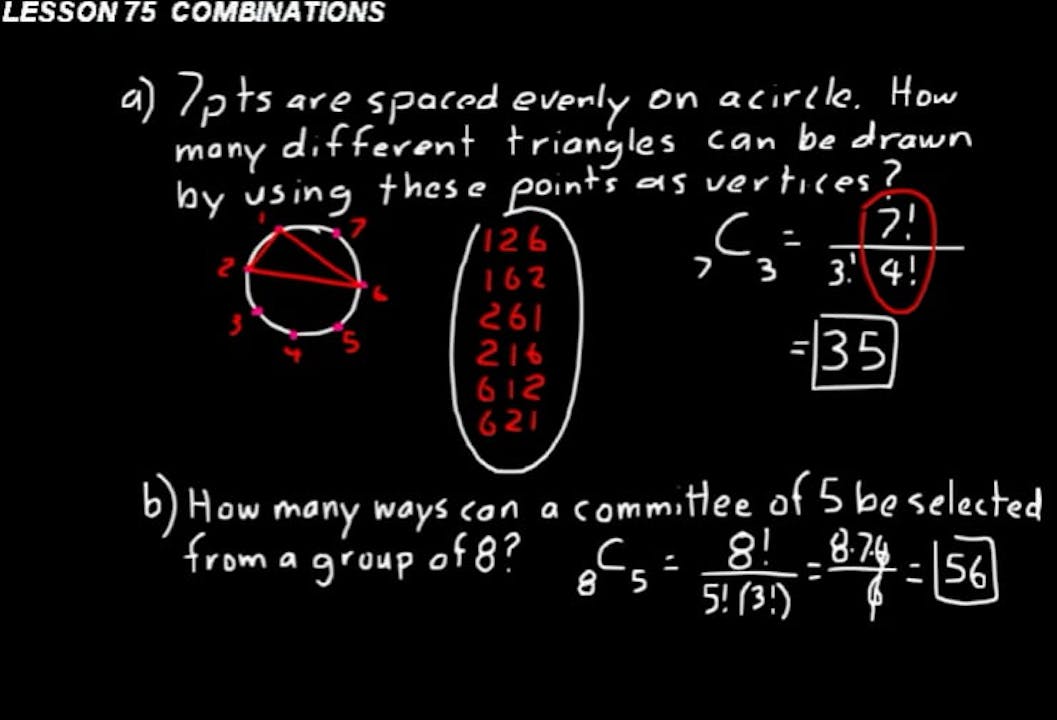 LESSON 75 COMBINATIONS
a) 7pts are spaced evenly on a circle. How
many different triangles can be drawn
by using these points as vertices?
1
7
2
6
3
5
4
126
162
261
216
612
621
7C3 = 7! / 3! 4!
= 35
b) How many ways can a committee of 5 be selected
from a group of 8?
8C5 = 8! / 5! (3!) = 8·7·6 / 6 = 56